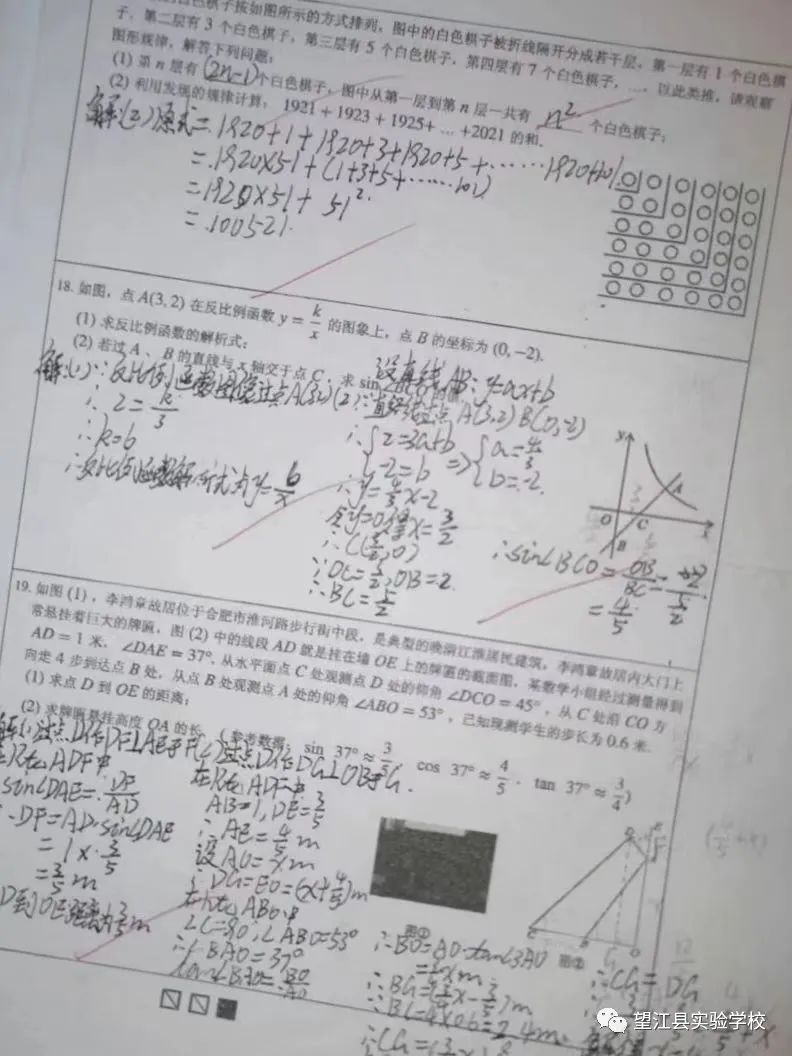 白色棋子按如图所示的方式排列，图中的白色棋子被折线隔开分成若干层，第一层有 1 个白色棋
子，第二层有 3 个白色棋子，第三层有 5 个白色棋子，第四层有 7 个白色棋子，…，以此类推，请观察
图形规律，解答下列问题：
(1) 第 n 层有 (2n-1) 个白色棋子，图中从第一层到第 n 层一共有 n² 个白色棋子；
(2) 利用发现的规律计算：1921 + 1923 + 1925 + … +2021 的和.
解:(2)原式=1920+1+1920+3+1920+5+……1920+101
=1920×51+(1+3+5+……101)
=1920×51+51²
=100521.
18. 如图，点 A(3, 2) 在反比例函数 y = k/x 的图象上，点 B 的坐标为 (0, −2).
(1) 求反比例函数的解析式；
(2) 若过 A、B 的直线与 x 轴交于点 C，求 sin
解:(1)∵反比例函数图像过点A(3,2)
∴2=k/3
∴k=6
∴反比例函数解析式为y=6/x
设直线AB:y=ax+b
(2)∵直线过点A(3,2)B(0,-2)
∴{2=3a+b
-2=b
=>{a=4/3
b=-2.
∴y=4/3x-2
令y=0得x=3/2
∴C(3/2,0)
∵OC=3/2,OB=2
∴BC=5/2
∴sin∠BCO=OB/BC=2/(5/2)
=4/5
y
A
O
C
x
B
19. 如图 (1)，李鸿章故居位于合肥市淮河路步行街中段，是典型的晚清江淮居民建筑，李鸿章故居内大门上
常悬挂着巨大的牌匾，图 (2) 中的线段 AD 就是挂在墙 OE 上的牌匾的截面图，某数学小组经过测量得到
AD = 1 米，∠DAE = 37°，从水平面点 C 处观测点 D 处的仰角 ∠DCO = 45°，从 C 处沿 CO 方
向走 4 步到达点 B 处，从点 B 处观测点 A 处的仰角 ∠ABO = 53°，已知观测学生的步长为 0.6 米.
(1) 求点 D 到 OE 的距离；
(2) 求牌匾悬挂高度 OA 的长. (参考数据：sin 37° ≈ 3/5，cos 37° ≈ 4/5，tan 37° ≈ 3/4)
解:(1)过点D作DF⊥AE于F
在Rt△ADF中
sin∠DAE=DF/AD
∴DF=AD·sin∠DAE
=1×3/5
=3/5m
D到OE距离为3/5m
(2)过点D作DG⊥OB于G.
在Rt△ADF中
AB=1,DE=3/5
∴AE=4/5m
设AO=xm
∴DG=EO=(x+4/5)m
在Rt△ABO中
∠C=90°,∠ABO=53°
∴∠BAO=37°
tan∠BAO=BO/AO
∴BO=AO·tan∠BAO
=3/4xm
∴BC=4×0.6=2.4m.
图①
图②
∴CG=DG
望江县实验学校